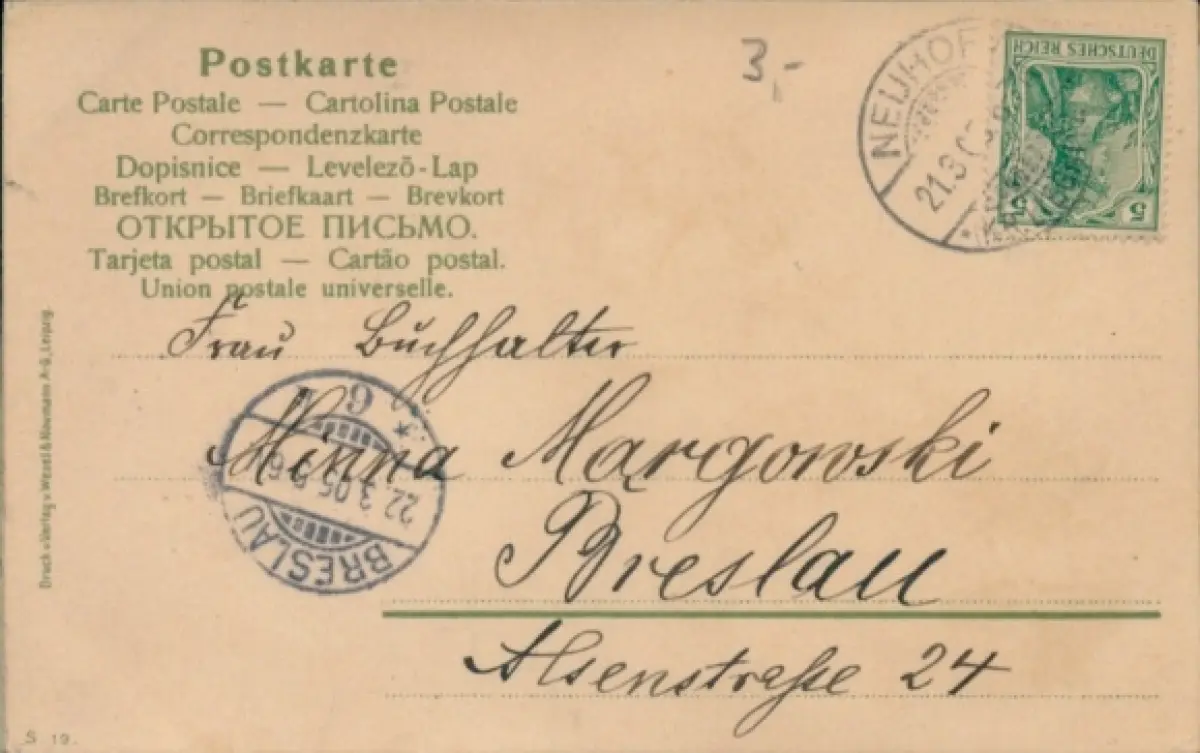 Postkarte
Carte Postale — Cartolina Postale
Correspondenzkarte
Dopisnice — Levelezō-Lap
Brefkort — Briefkaart — Brevkort
ОТКРЫТОЕ ПИСЬМО.
Tarjeta postal — Cartão postal.
Union postale universelle.
3,-
NEUHOF
21.3.0
DEUTSCHES REICH
5 5
Frau Buchhalter
Minna Margowski
Breslau
Alsenstraße 24
BRESLAU
22.3.05
Druck u Verlag v Wezel & Naumann A-G, Leipzig.
S 19.